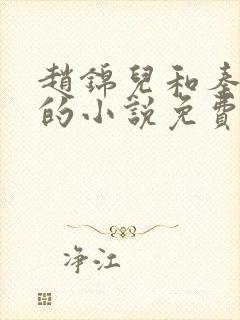 趙錦兒和秦
的小說免費
净江